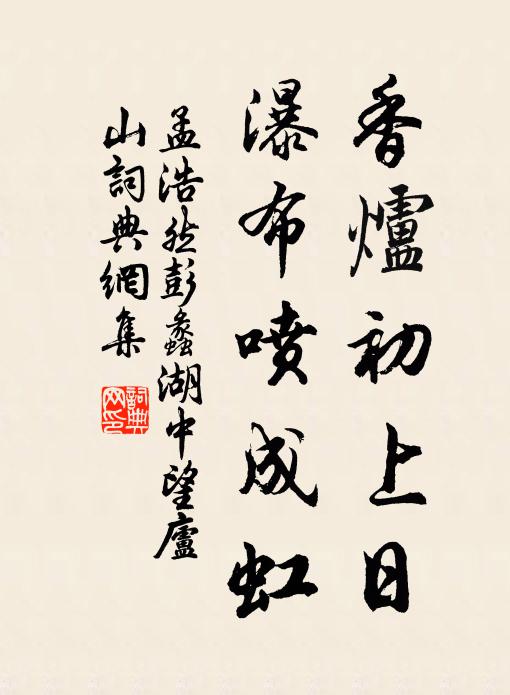 香爐初上日
瀑布噴成虹
孟浩然彭蠡湖中望廬
山詞典網集
詞典
网印